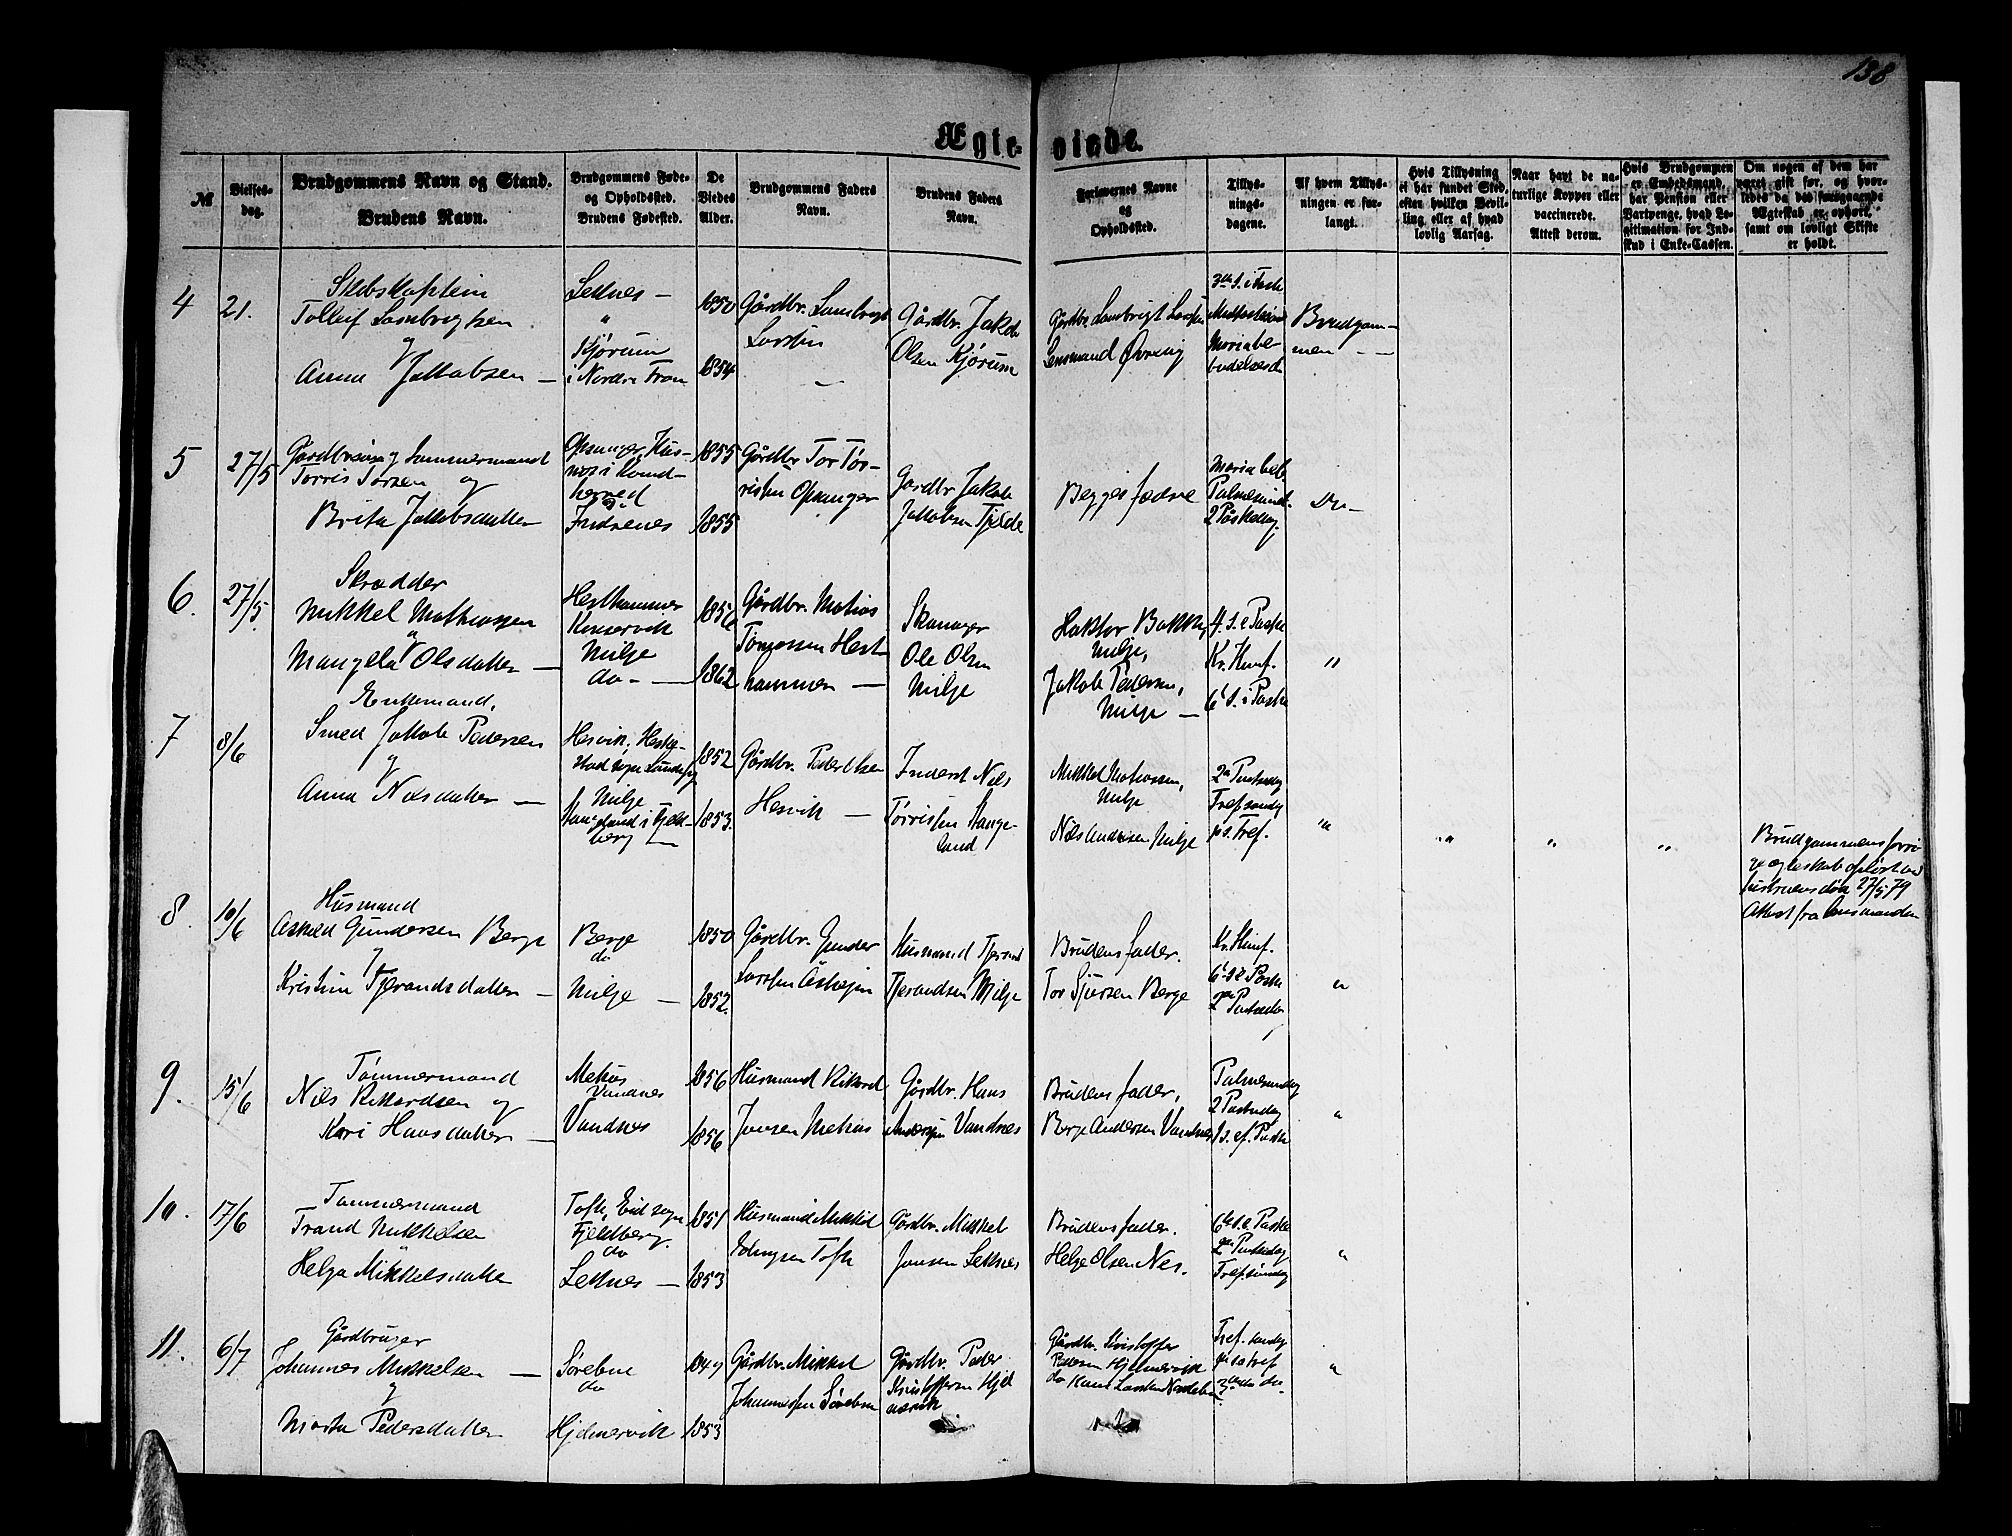 138
Ægte- viede.
№
Vielses-
dag.
Brudgommens Navn og Stand.
Brudens Navn.
Brudgommens Føde-
og Opholdssted.
Brudens Fødested.
De
Viedes
Alder.
Brudgommens Faders
Navn.
Brudens Faders
Navn.
Forlovernes Navne
og
Opholdssted.
Tillys-
nings-
dagene.
Af hvem Tillys-
ningen er for-
langt.
Hvis Tillysning
ei har fundet Sted,
efter hvilken Bevil-
ling, eller af hvad
lovlig Aarsag.
Naar havt de na-
turlige Kopper eller
vaccinerede.
Attest derom.
Hvis Brudgommen
er Embedsmand,
har Pension eller
Vartpenge, hvad Le-
gitimation for Ind-
skud i Enke-Cassen.
Om nogen af dem har
været gift før, og hvor-
ledes da det foregaaende
Ægteskab er ophørt,
samt om lovligt Skifte
er holdt.
4
21.
Skibskaptein
Tolleif Lambregtsen
og
Anna Jakobsen —
Leknes —
"
Kjørum
i Nordre Fron
1850
1854
Gårdbr. Lambregt
Larsen
Gårdbr. Jakob
Olsen Kjørum
Gårdbr. Lambrigt Larsen
Lensmand
3die S. i Faste
Midfastesøndag
Mariabe-
budelsesd.
Brudgom-
men —
5
27/5
og Tømmermand
Torris Torsen og
Brita Jakobsdatter
Opsanger, Hus-
nes i Kvind-
herred
Indrenes
1855
1855
Gårdbr. Tor Tør-
risen Opsanger
Gårdbr. Jakob
Jakobsen Tjelde
Begges fædre
Maria beb.
Palmesønd.
2 Påskedag.
Do —
6.
27/5.
Skrædder
Mikkel Mathiassen
og
Mangela Olsdatter —
Hesthammer
Kinservik
Milje
do —
1856
1862
Gårdbr. Matias
Tomassen Hest-
hammer —
Skomager
Ole Olsen
Milje
Haktor Bakke,
Milje,
Jakob Pedersen,
Milje —
4. S. e Paske
Kr. Himf.
6te S. i Paske
"
7
8/6
Enkemand,
Smed Jakob Pedersen
og
Anna Nilsdatter —
Hesvik, Heske-
stad sogn Lunde
Milje
i Fjeld-
berg —
1852
1853.
Gårdbr. Peder Olsen
Hesvik —
Inderst Nils
Tørrisen Stange-
land
Mikkel Matiassen,
Milje
Nils Andersen Milje
2en Pintsedag
Trefsøndag
1 S. Tref.
"
"
"
"
Brudgommens forri-
ge ægteskab opløst ved
hustruens død 27/5 79
Attest fra lensmanden
8.
10/6
Husmand
Askild Gundersen Berge
og
Kristine Tjerandsdatter —
Berge
do
Milje —
1850
1852.
Gårdbr. Gunder
Larsen
Husmand Tjerand
Tjerandsen Milje
Brudens fader.
Tor Sjursen Berge
Kr. Himf.
6te S. e Paske
2en Pintsedag
"
9.
15/6
Tømmermand
Nils Rikardsen og
Kari Hansdatter —
Mehus
Vandnes
Vandnes
1856
1856
Husmand Rikard
Jonsen Mehus
Gårdbr. Hans
Andersen Vandnes
Brudens fader,
Berge Andersen Vandnes
Palmesøndag
2 Paskedag
1 S. ef. Paske
"
10.
17/6
Tømmermand
Trand Mikkelsen
Helga Mikkelsdatter
Tofte, Eid sogn
Fjeldberg.
do
Leknes —
1851
1853
Husmand Mikkel
Tofte
Gårdbr. Mikkel
Jansen Leknes
Brudens fader.
Helge Olsen Nes.
6te S. e Paske
2en Pintsedag
Trefsøndag
"
11.
6/7
Gårdbruger
Johannes Mikkelsen —
og
Marta Pedersdatter
Sørebne
do
Hjelmervik
1849
1853
Gårdbr. Mikkel
Johannessen Sørebne
Gårdbr. Peder
Kristoffersen Hjel-
mervik
Gårdbr. Kristoffer
Pedersen Hjelmervik
do Hans Larsen
Tref. søndag
"